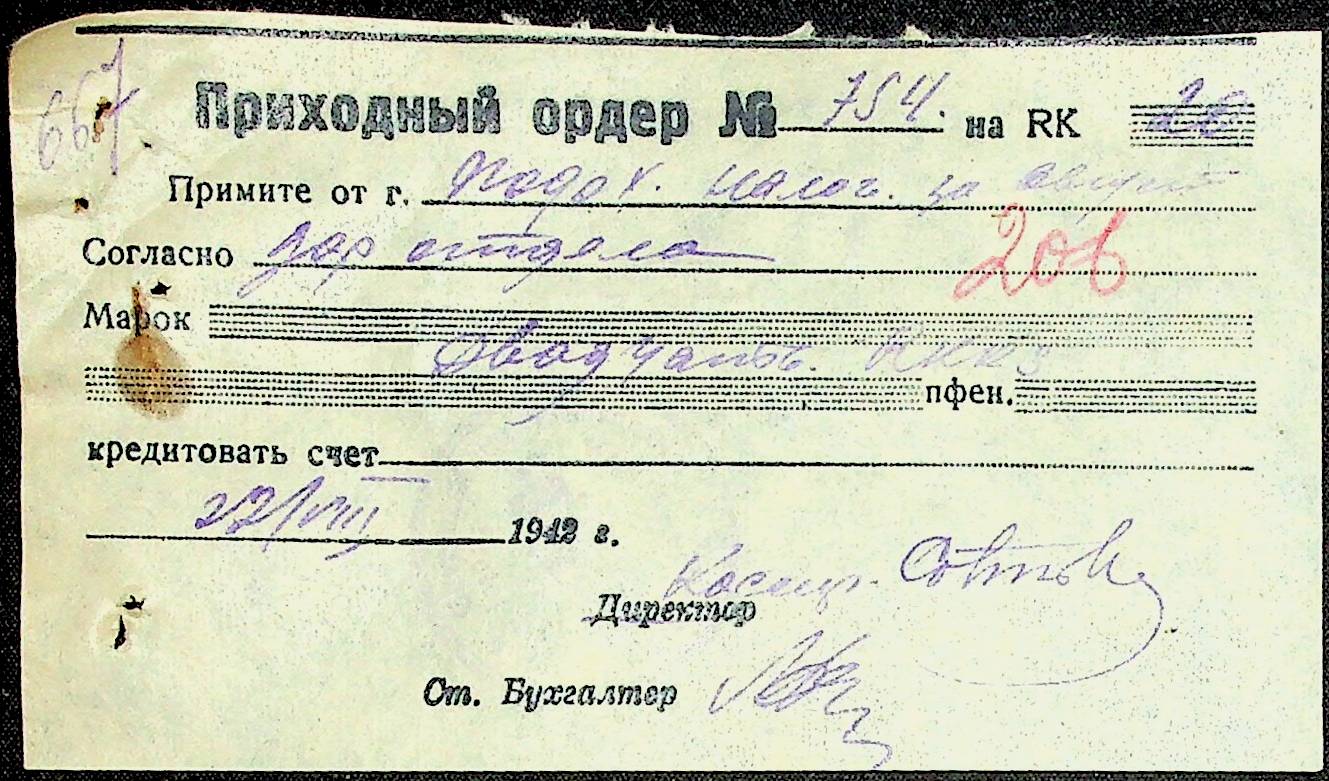 667
Приходный ордер № 754. на RK 20
Примите от г. Подох. налог. за август
Согласно зар отдела
206
Марок
Двадцать.
пфен.
кредитовать счет
22/VIII 1942 г.
Директор
Ст. Бухгалтер